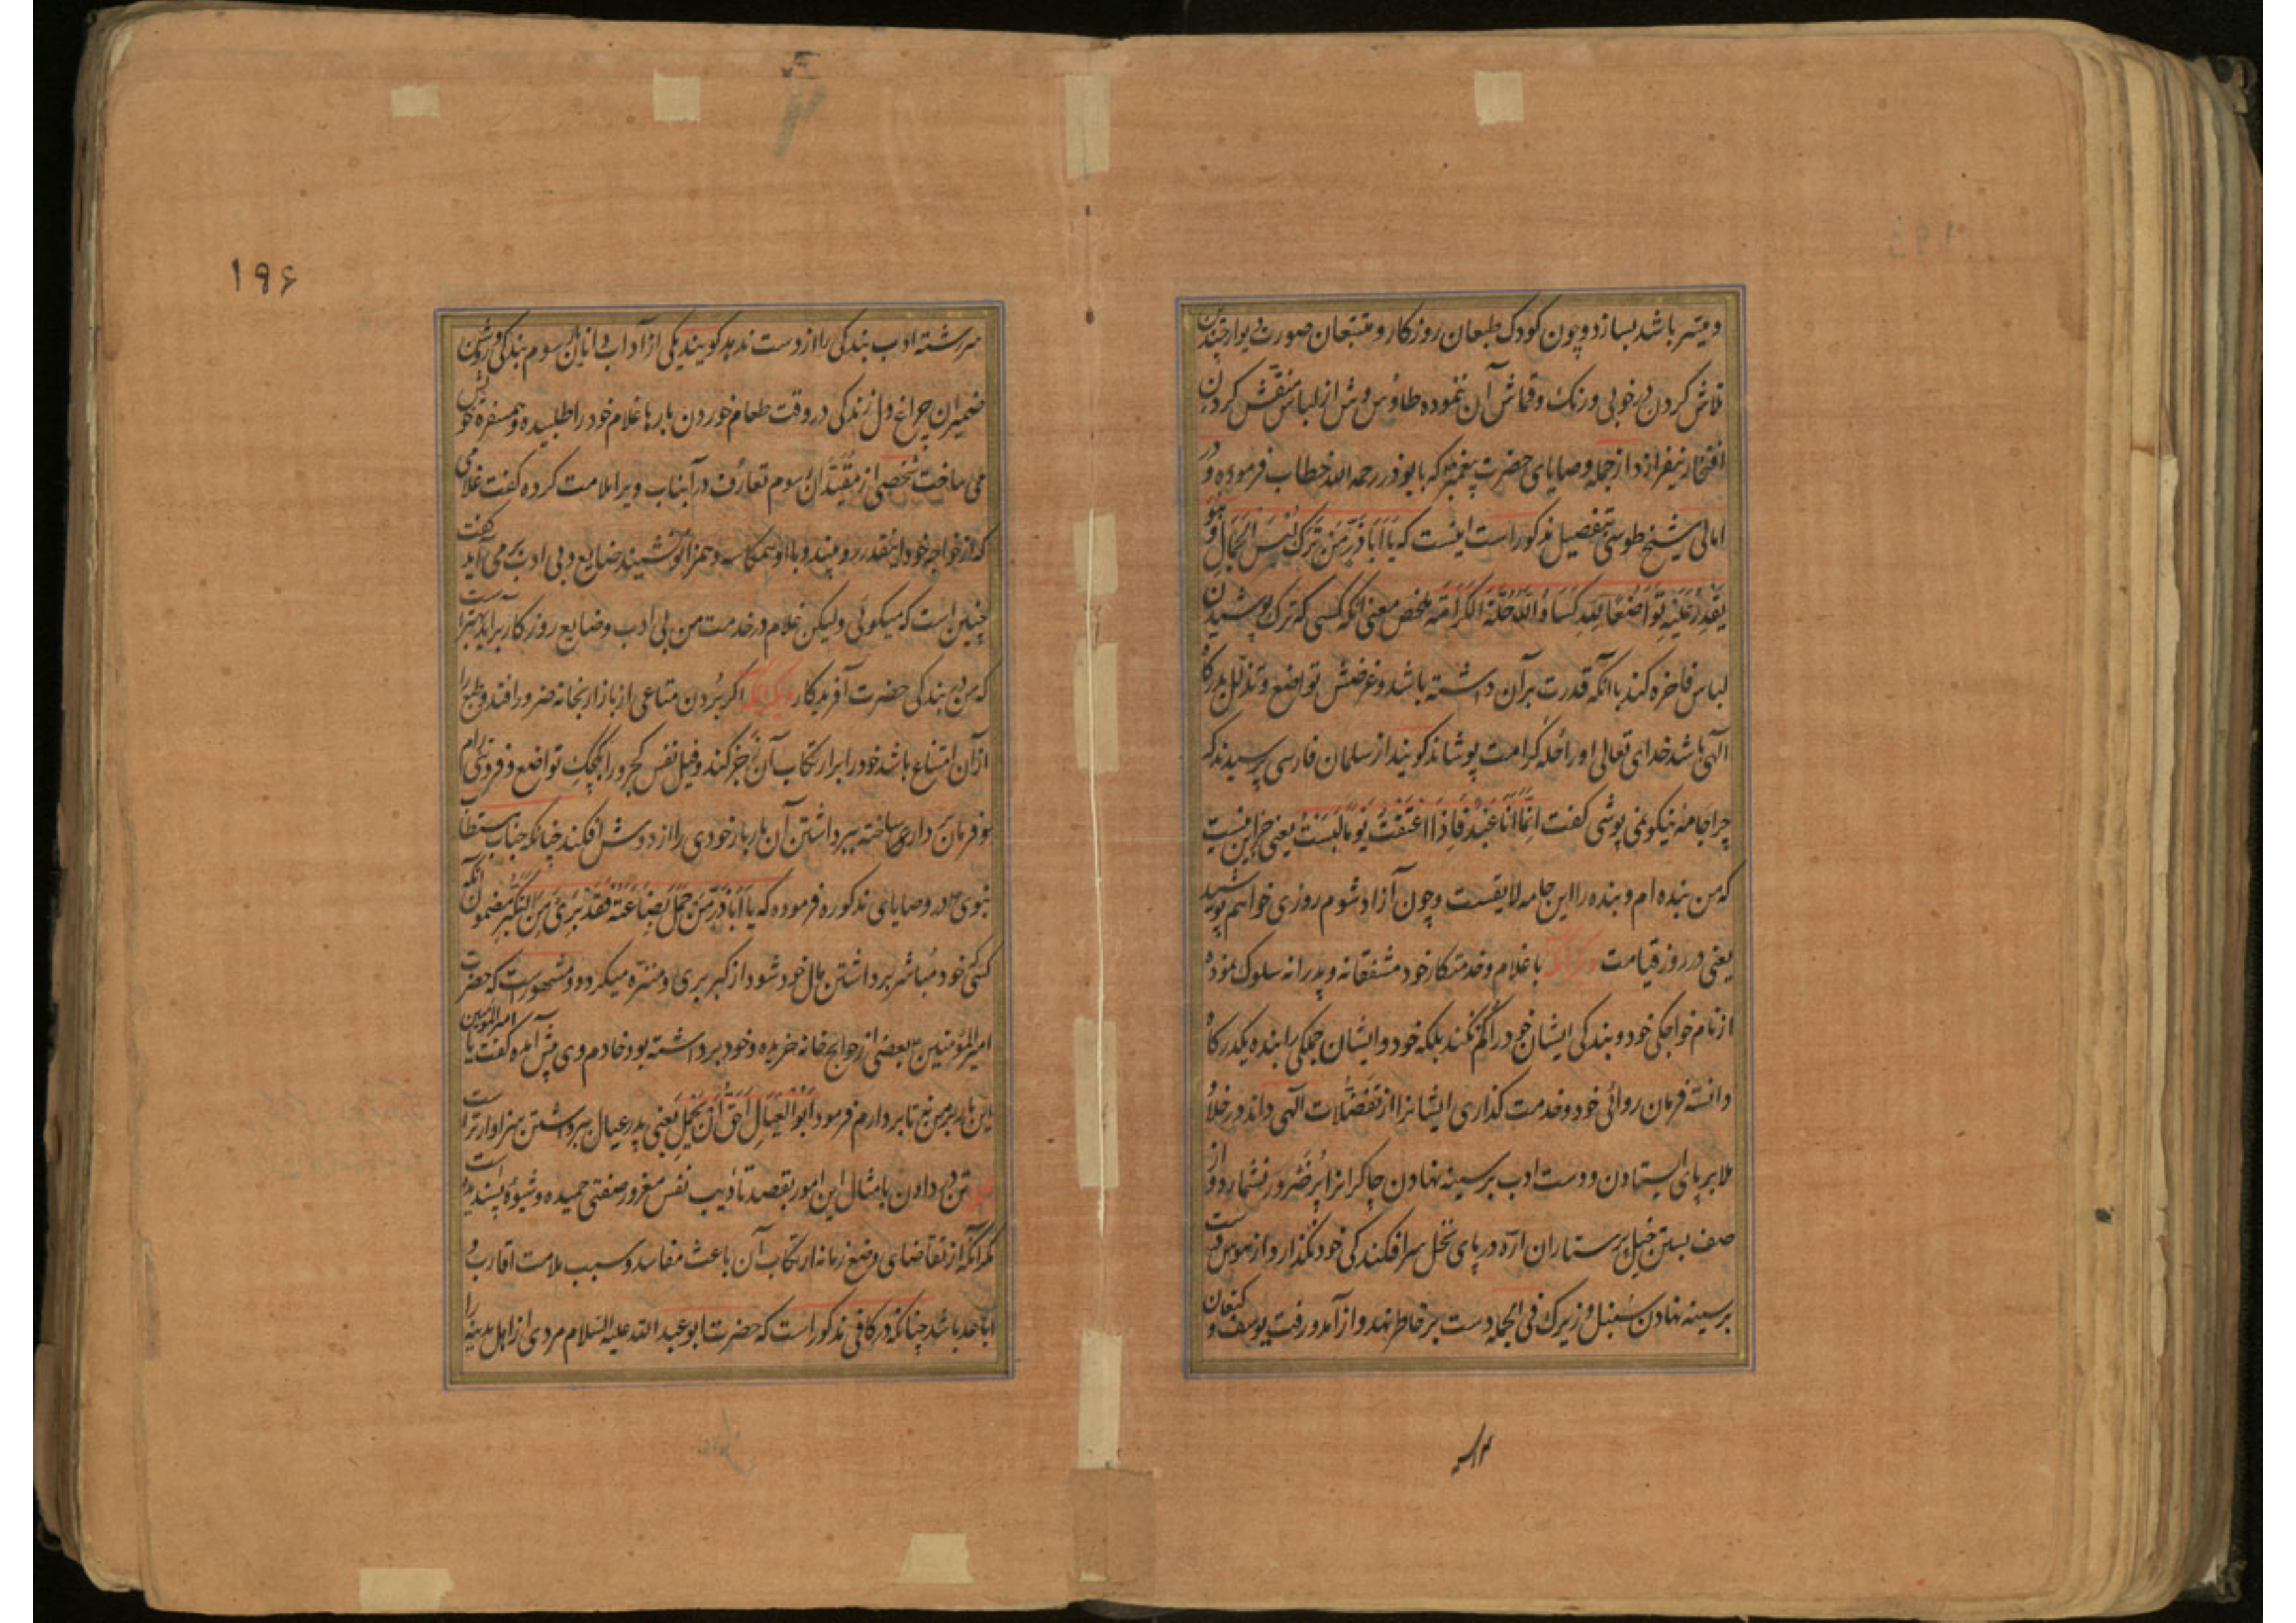 و میسر باشد بسازد و چون کودک طبعان روزکار و متتبعان صورت دیوار چندین
تلاش کردن در خوبی و رنک و قماش آن ننموده طاوس وش از لباس منقش کردن
افتخار نیفرازد از جمله وصایای حضرت پیغمبر که بابوذر رحمه الله خطاب فرموده و در
امالی شیخ طوسی بتفصیل مذکور است اینست که یا اباذر من ترک لبس الجمال و هو
یقدر علیه تواضعا لله کساه الله حلة الکرامة ملخص معنی آنکه کسی که ترک پوشیدن
لباس فاخره کند با آنکه قدرت بر آن داشته باشد و غرضش تواضع و تذلل بدرکاه
الهی باشد خدای تعالی او را حله کرامت پوشاند کویند از سلمان فارسی پرسیدند که
چرا جامه نیکو نمی پوشی کفت انما انا عبد فاذا اعتقت یوما لبست یعنی جز این نیست
که من بنده ام و بنده را این جامه لایقست و چون آزاد شوم روزی خواهم پوشید
یعنی در روز قیامت دیگر آنکه با غلام و خدمتکار خود مشفقانه و پدرانه سلوک نموده
از نام خواجکی خود و بندکی ایشان خود را کم نکند بلکه خود و ایشان جملکی را بنده یکدرکاه
دانسته فرمان روائی خود و خدمت کذاری ایشانرا از تفضلات الهی داند و در خلا و
ملا بر پای ایستادن و دست ادب بر سینه نهادن چاکرانرا پر ضرور نشمارد و از
صف بستن خیل پرستاران اره در پای نخل سرافکندکی خود نکذارد و از هوس دست
بر سینه نهادن سنبل و زیرک فی الجمله دست بر خاطر نهد و از آمد و رفت یوسف و کنعان
سررشته ادب بندکی را از دست ندهد کویند یکی از آداب دانان رسوم بندکی و روشن
ضمیران چراغ دل زندکی در وقت طعام خوردن بارها غلام خود را طلبیده و همسفره خویش
می ساخت شخصی از مقیدان رسوم تعارف در آنباب ویرا ملامت کرده کفت غلامی
که از خواجه خود اینقدر رو بیند و با او همکاسه و همزانو نشیند ضایع و بی ادب بر می آید کفت
چنین است که میکوئی ولیکن غلام در خدمت من بی ادب و ضایع روزکار برآید بهتر است
که من در بندکی حضرت آفریدکار دیگر آنکه اکر بردن متاعی از بازار بخانه ضرور افتد و طبع را
از آن امتناع باشد خود را بر ارتکاب آن جبر کند و فیل نفس کجرو را بکجک تواضع و فروتنی رام
و فرمان بردار ساخته ببرداشتن آن بار بار خودی را از دوش افکند چنانکه جناب مستطاب
نبوی در وصایای مذکوره فرموده که یا اباذر من حمل بضاعته فقد بری من التکبر مضمون آنکه
کسی خود مباشر برداشتن مال خود شود از کبر بری و منزه میکردد و مشهور است که حضرت
امیرالمؤمنین بعضی از حوایج خانه خریده و خود برداشته بود خادم وی پیش آمده کفت یا امیرالمومنین
این بار بمن ده تا بردارم فرمود ابو العیال احق ان یحمل یعنی پدر عیال ببرداشتن سزاوارتر است
تن در دادن بامثال این امور بقصد تادیب نفس مغرور صفتی حمیده و شیوه پسندیده است
مکر آنکه از تقاضای وضع زمانه ارتکاب آن باعث مفاسد و سبب ملامت اقارب و
اباعد باشد چنانکه در کافی مذکور است که حضرت ابو عبد الله علیه السلام مردی از اهل مدینه را
۱۹۶